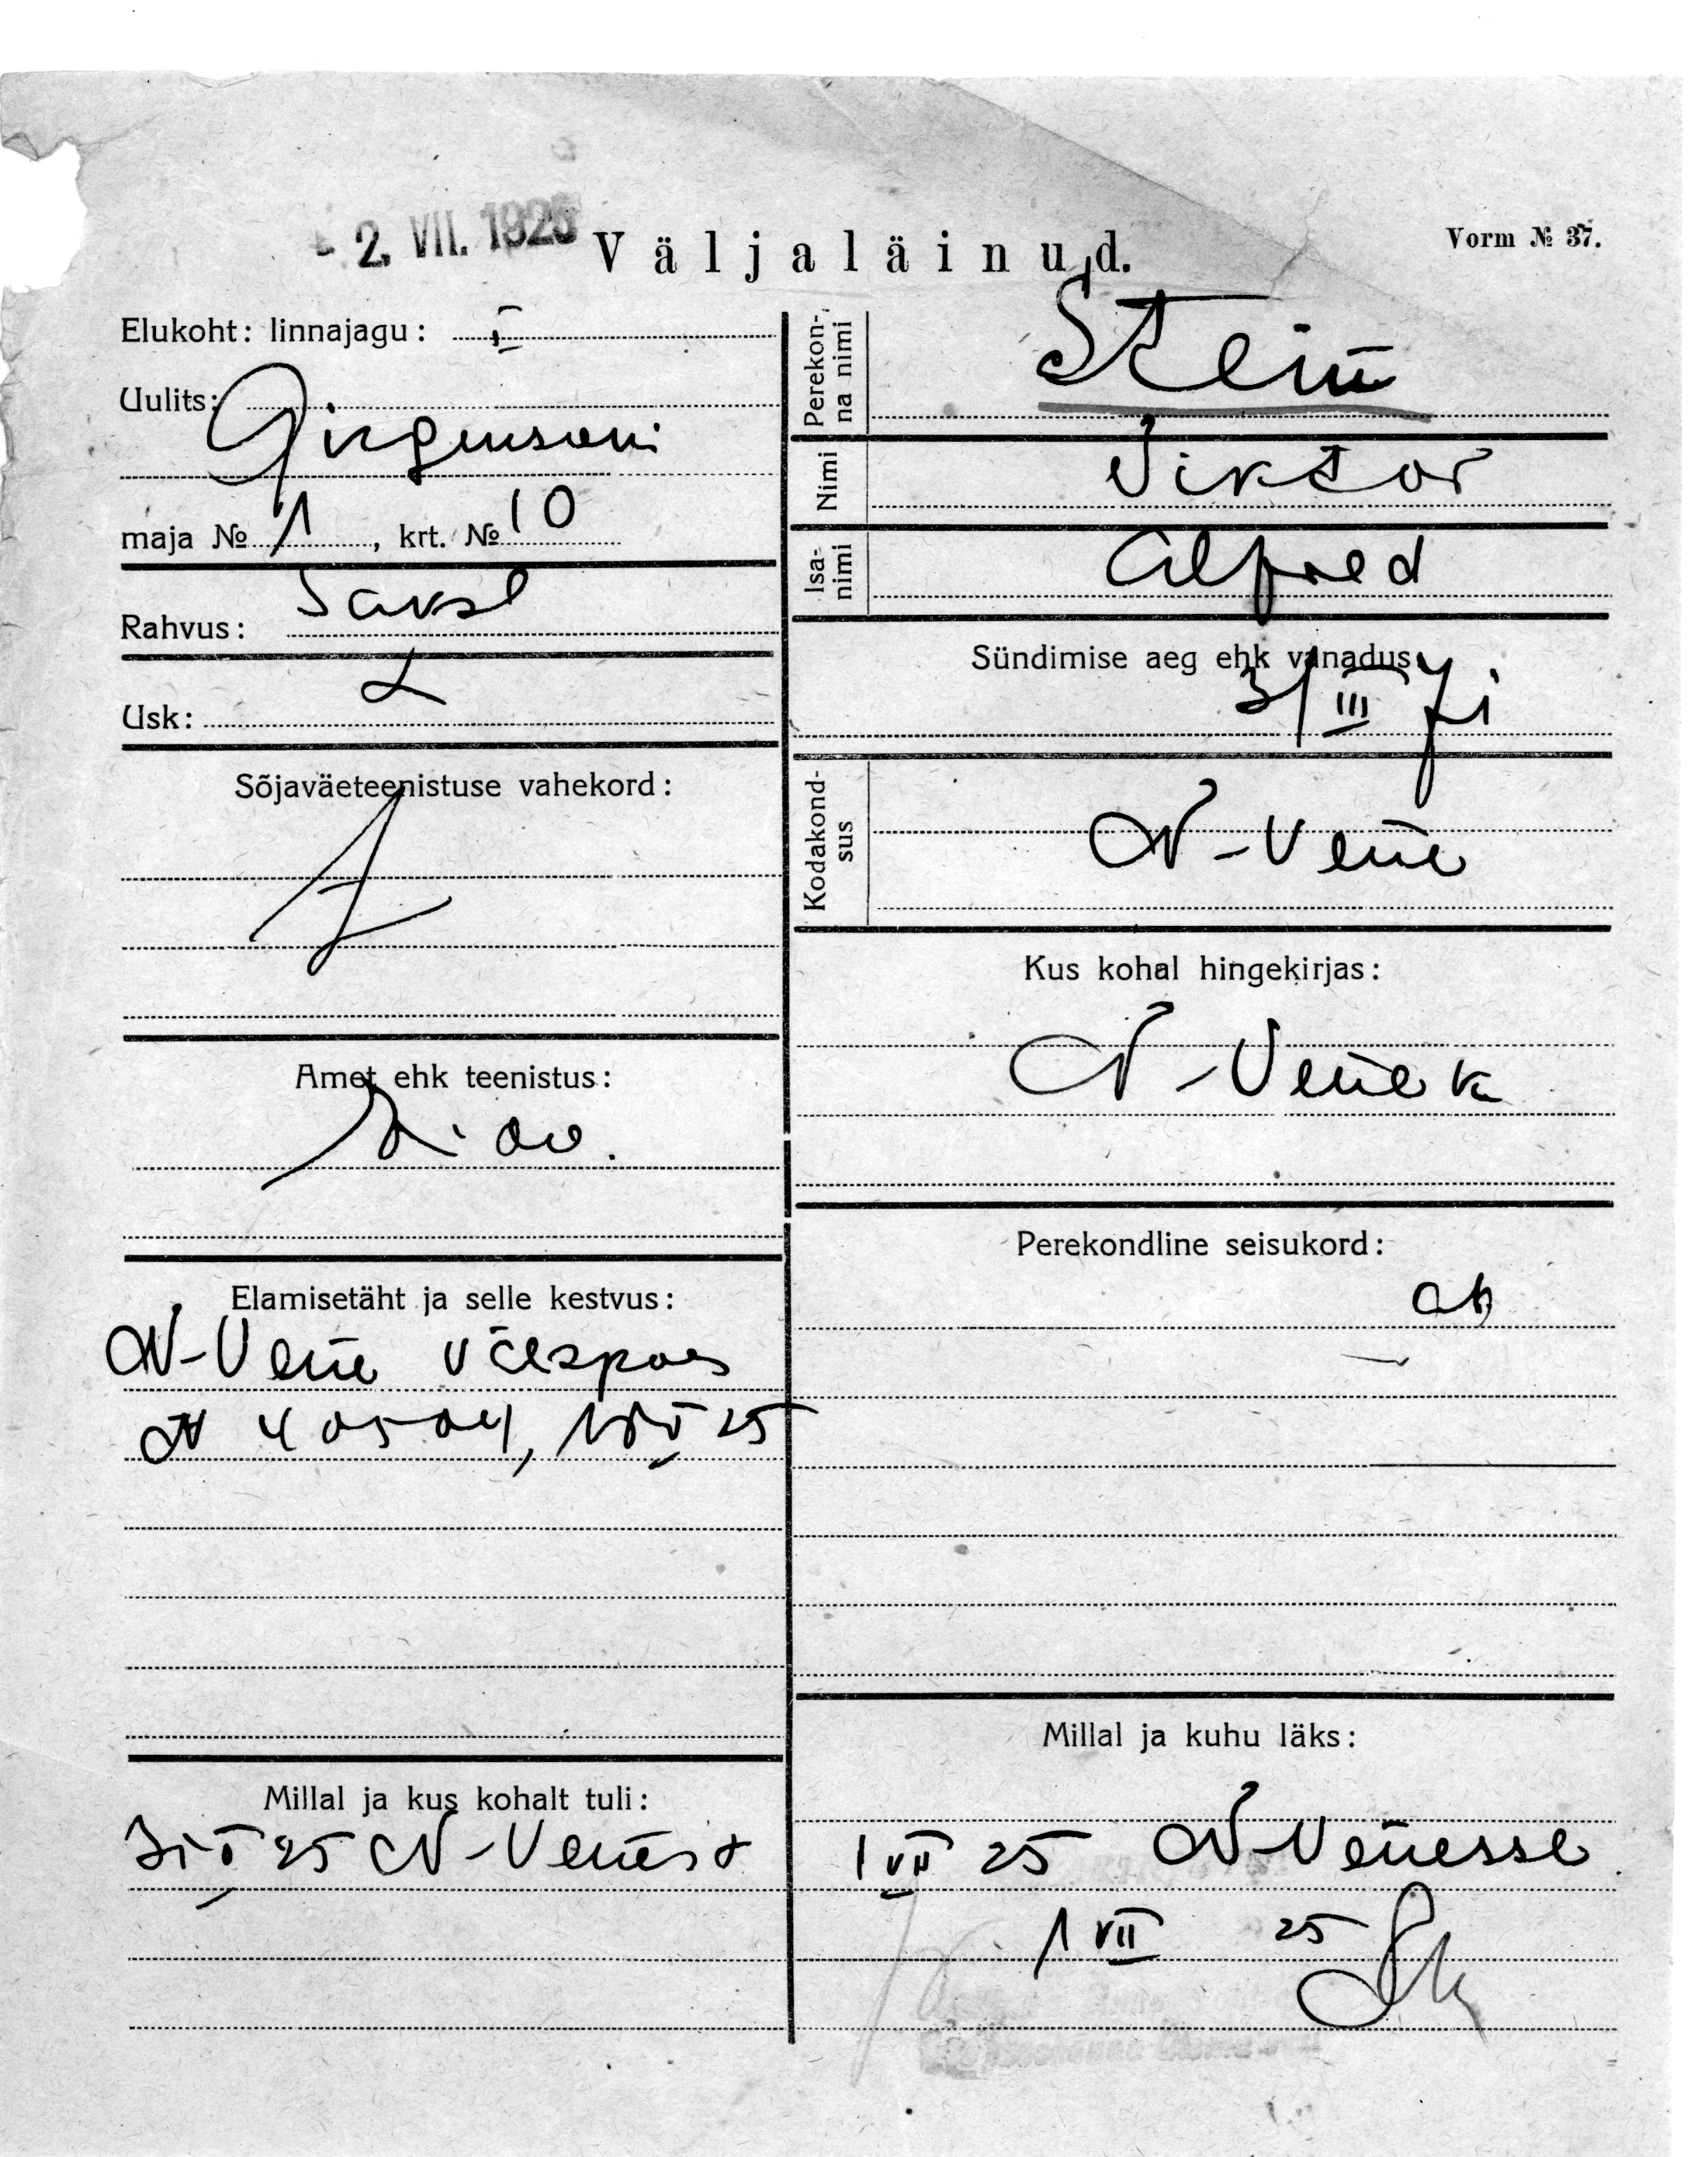 2. VII. 1925
Väljaläinud.
Vorm № 37.
Elukoht: linnajagu: I
Uulits:
Girgensoni
maja № 1, krt. № 10
Rahvus: Saksl
Usk: L
Sõjaväeteenistuse vahekord:
Amet ehk teenistus:
Elamisetäht ja selle kestvus:
N-Vene välispass
N 40504,
25
Millal ja kus kohalt tuli:
25 N-Venest
Perekonna nimi
Stein
Nimi
Viktor
Isanimi
Alfred
Sündimise aeg ehk vanadus:
3/III
Kodakondsus
N-Vene
Kus kohal hingekirjas:
N-Venek
Perekondline seisukord:
ab
Millal ja kuhu läks:
1 VII 25 N-Venesse
1 VII 25